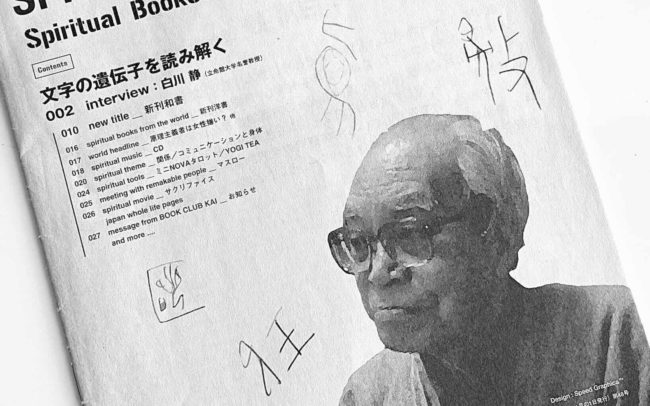 Spiritual Books
Contents
文字の遺伝子を読み解く
002 interview:白川 静 (立命館大学名誉教授)
010 new title __ 新刊和書
016 spiritual books from the world __ 新刊洋書
017 world headline __ 原理主義者は女性嫌い? 他
018 spiritual music __ CD
020 spiritual theme __ 関係/コミュニケーションと身体
024 spiritual tools __ ミニNOVAタロット/YOGI TEA
025 meeting with remakable people __ マスロー
026 spiritual movie __ サクリファイス
japan whole life pages
027 message from BOOK CLUB KAI __ お知らせ
and more ....
狂
Design : Speed Graphics